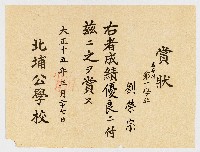 賞狀
第一學年
劉榮宗
右者成績優良ニ付
玆ニ之ヲ賞ス
大正十五年三月二十七日
北埔公學校